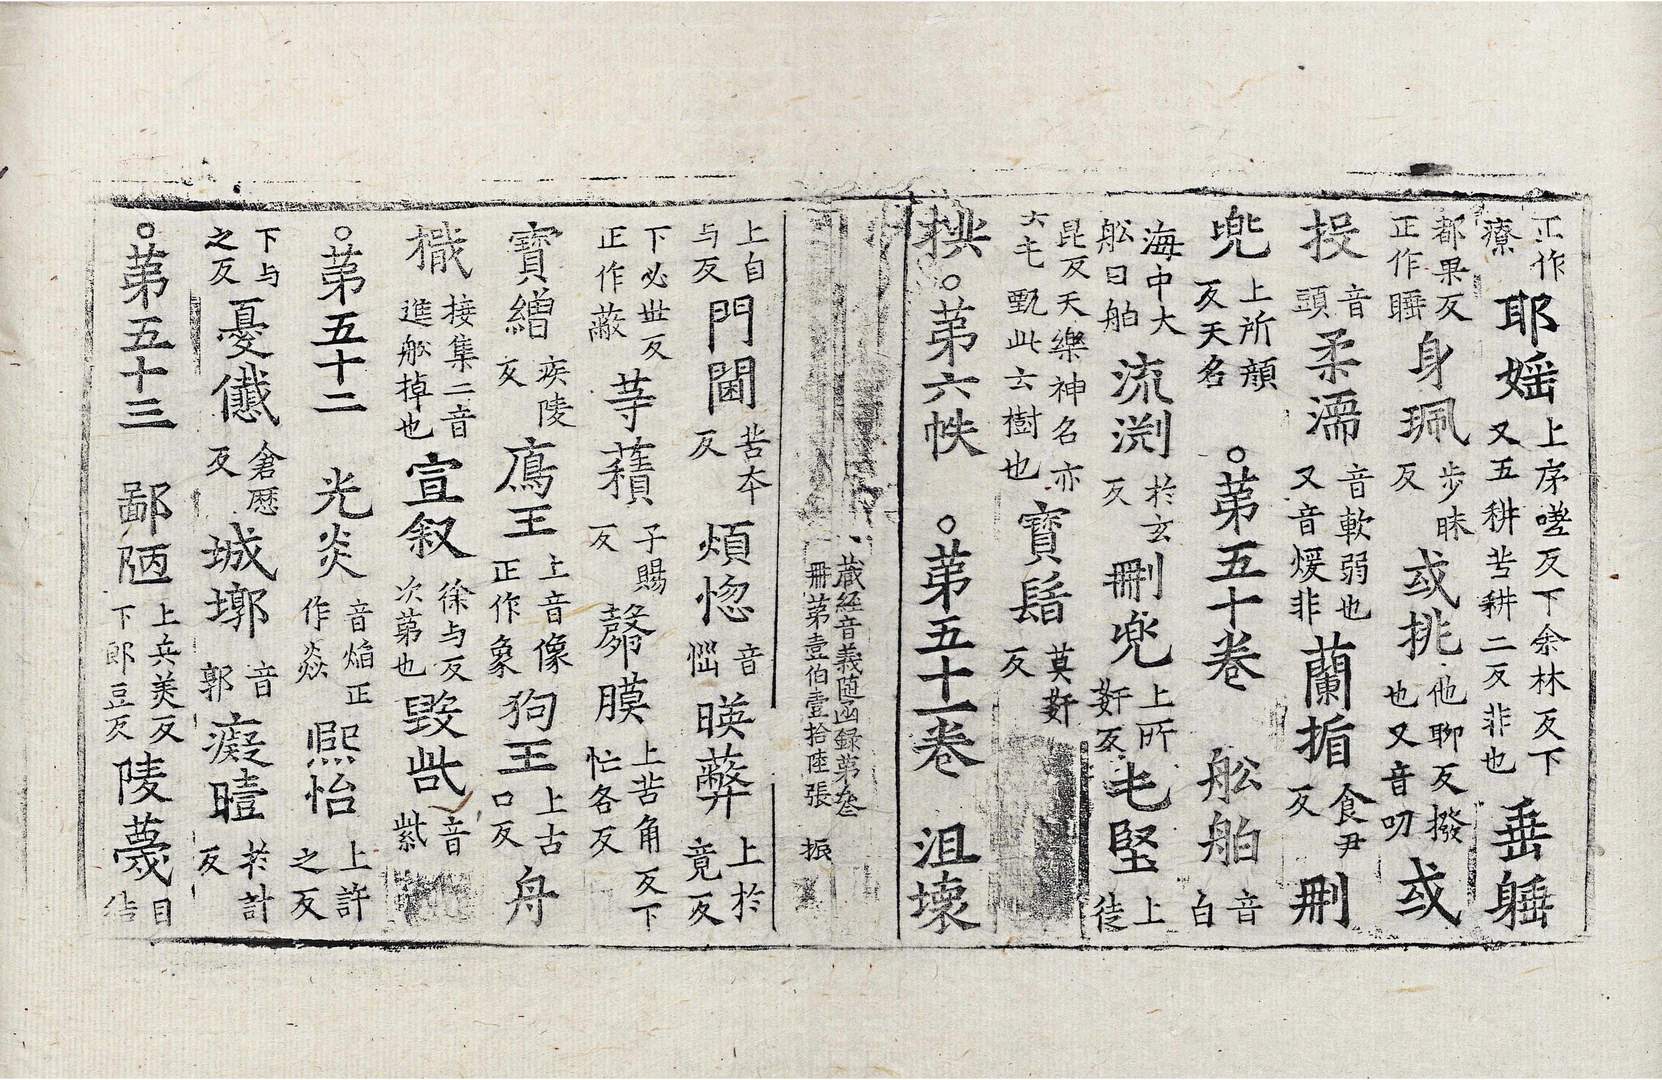 正作療耶婬上序嗟反下余林反下又五耕苦耕二反非也垂𨉖
都果反正作睡身珮步昧反或挑他聊反撥也又音叨或
投音頭柔濡音軟弱也又音煗非蘭揗食尹反刪
兜上所顔反天名。第五十卷舩舶音白
海中大舩曰舶流渕於玄反刪兜上所姧反乇堅上徒
昆反天樂神名亦云乇甄此云樹也寳鬘莫姧反
栱。第六帙。第五十一卷沮壞
藏經音義随函録第叄
冊第壹伯壹拾陸張 振
上自与反門閫苦夲反煩惚音惱暎蔽上於竟反
下必世反正作蔽䓁𧂐子賜反髈膜上苦角反下忙各反
寳繒疾陵反鳸王上音像正作象狗王上古口反舟
檝接集二音進舩掉也宣叙徐与反次第也毀呰音紫
。第五十二光炎音焔正作焱熈怡上許之反
下与之反憂懴倉歷反城墎音郭癡曀於計反
。第五十三鄙陋上兵美反下郎豆反陵蔑目結